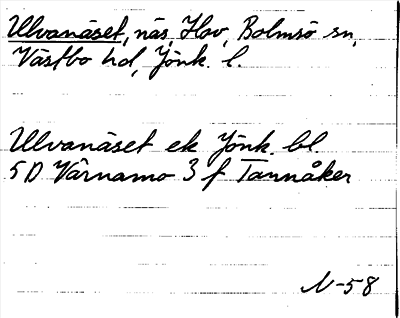 Ulvanäset, näs, Hov, Bolmsö sn,
Västbo hd, Jönk. l.
Ulvanäset ek Jönk. bl.
5D Värnamo 3 f Tannåker
N-58